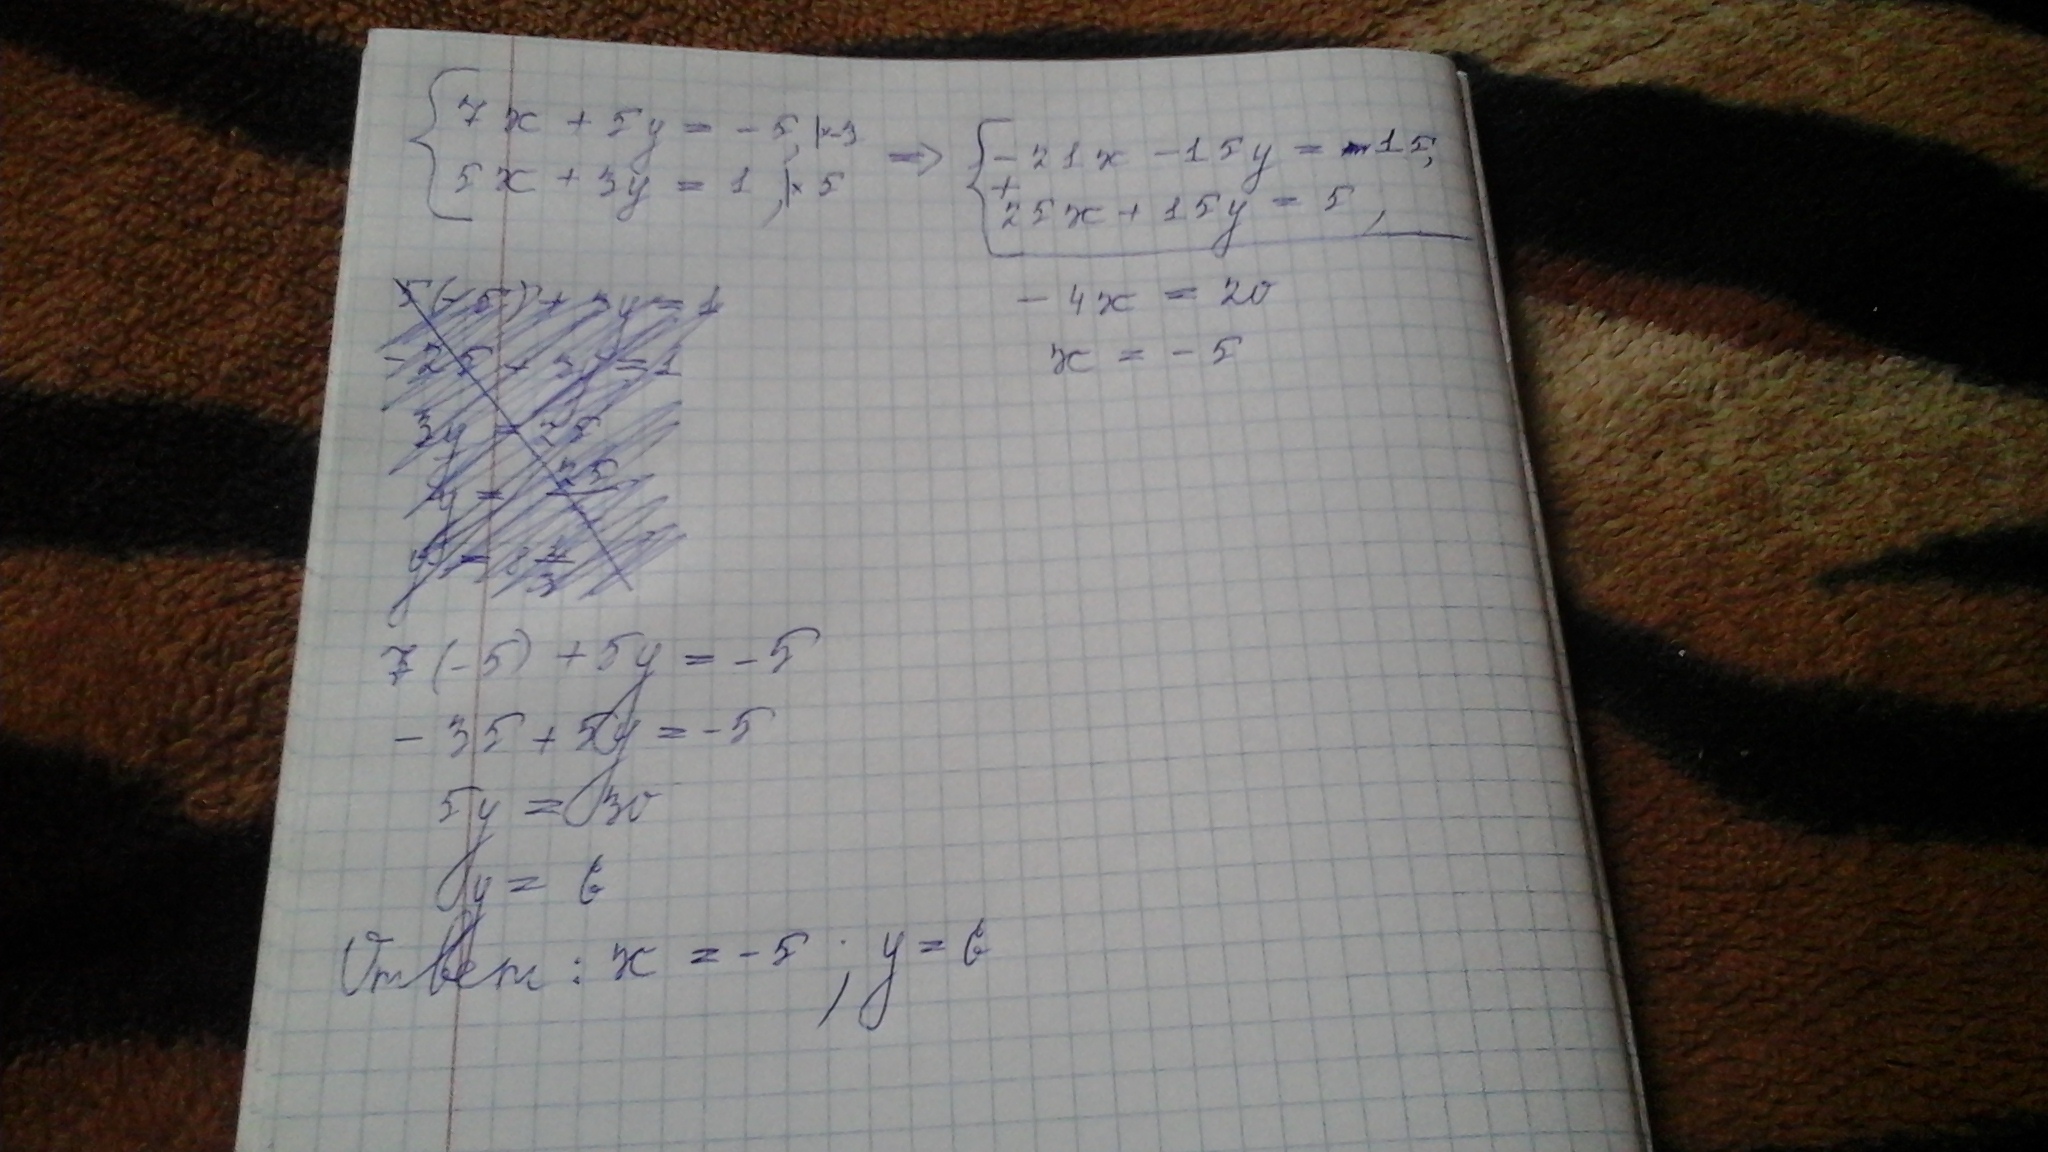 7x + 5y = -5, |×-3
5x + 3y = 1, |×5
=>
-21x - 15y = -15,
+
25x + 15y = 5,
-4x = 20
x = -5
5(-5) + 3y = 1
-25 + 3y = 1
3y = 25
7(-5) + 5y = -5
-35 + 5y = -5
5y = 30
y = 6
Ответ: x = -5; y = 6